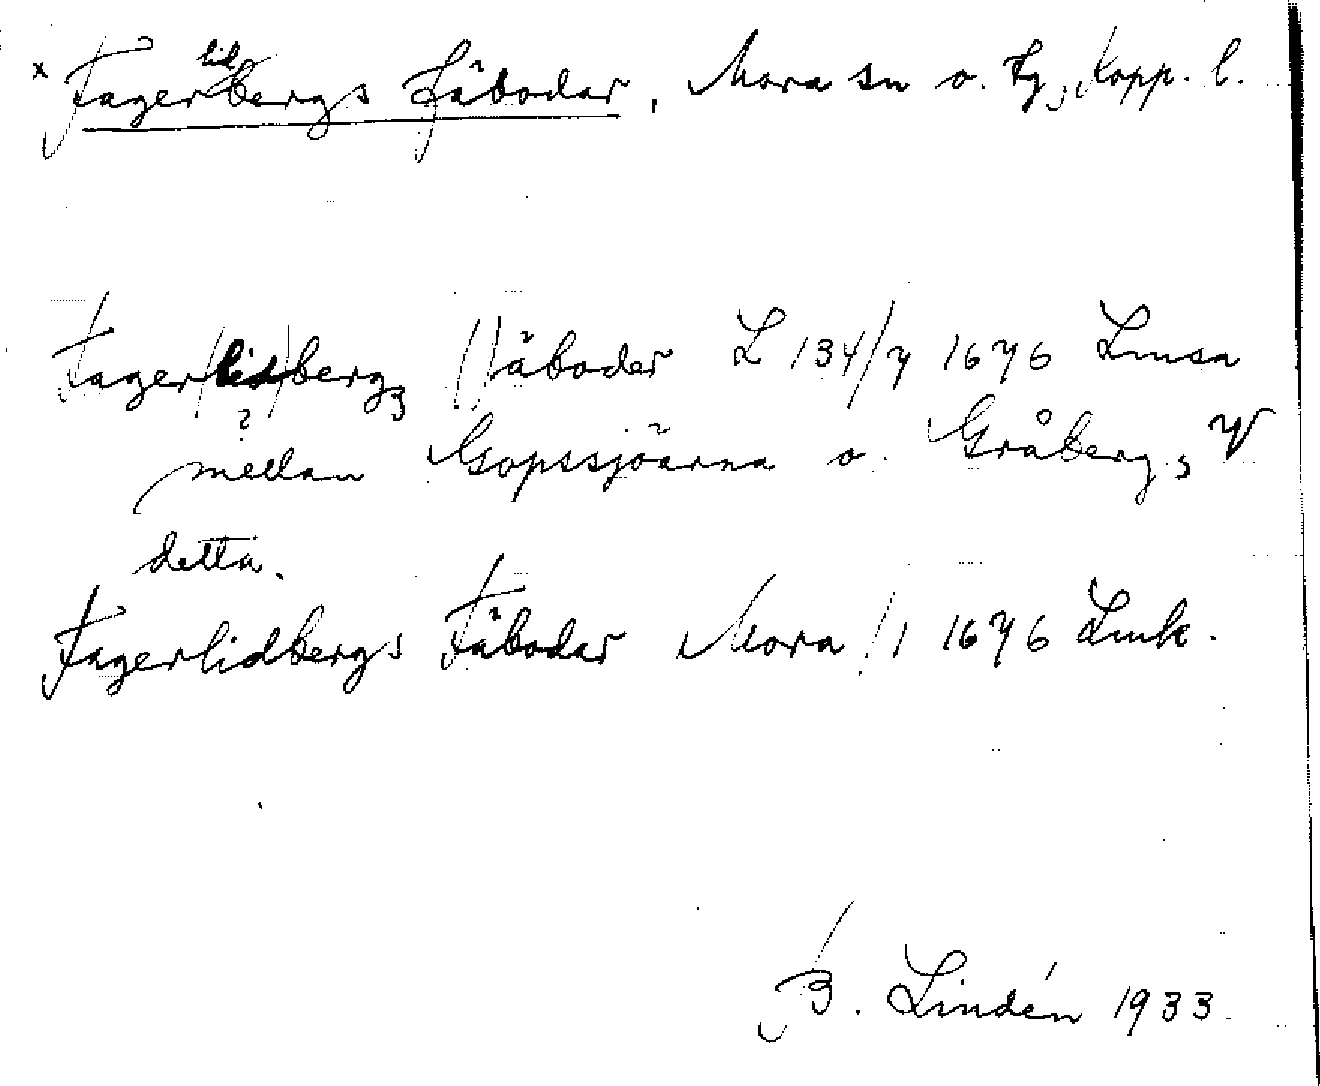 x Fagerlidbergs Fäbodar, Mora sn o. tg, Kopp. l.
Fager(lid)bergs (F)äboder L 134/7 1676 Lmsa
?
mellan Gopssjöarna o. Gråberg, V
detta.
Fagerlidbergs Fäbodar Mora /1 1676 Lmk.
B. Lindén 1933